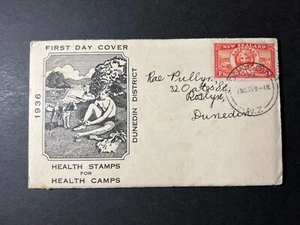 FIRST DAY COVER
1936
DUNEDIN DISTRICT
HEALTH STAMPS
FOR
HEALTH CAMPS
NEW ZEALAND
Rae Pullyn,
32 Oates St,
Roslyn,
Dunedin
N.Z